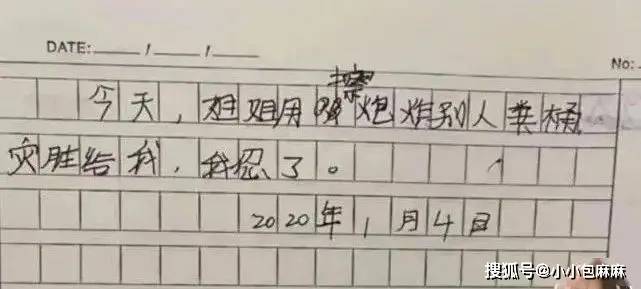 DATE: / /
No:
今天，姐姐用擦炮炸别人粪桶
灾胜给我，我忍了。
2020年1月4日
搜狐号@小小包麻麻